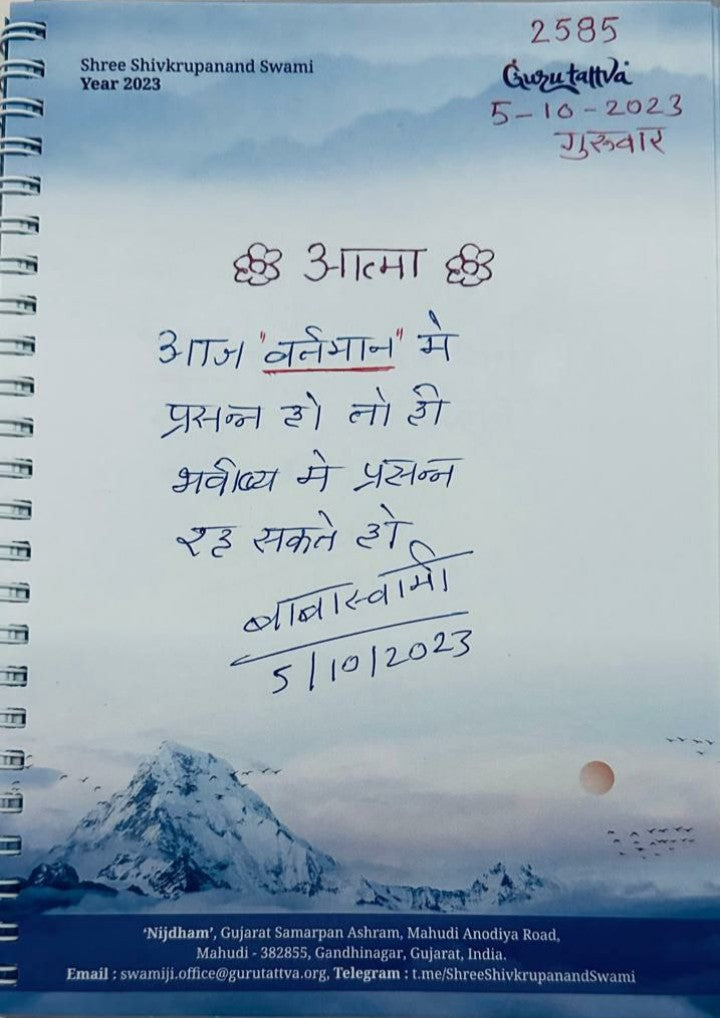 2585
Shree Shivkrupanand Swami
Year 2023
Gurutattva
5-10-2023
गुरुवार
आत्मा
आज "वर्तमान" मे
प्रसन्न हो तो ही
भवीष्य मे प्रसन्न
रह सकते हो
बाबास्वामी
5/10/2023
'Nijdham', Gujarat Samarpan Ashram, Mahudi Anodiya Road,
Mahudi - 382855, Gandhinagar, Gujarat, India.
Email : swamiji.office@gurutattva.org, Telegram : t.me/ShreeShivkrupanandSwami